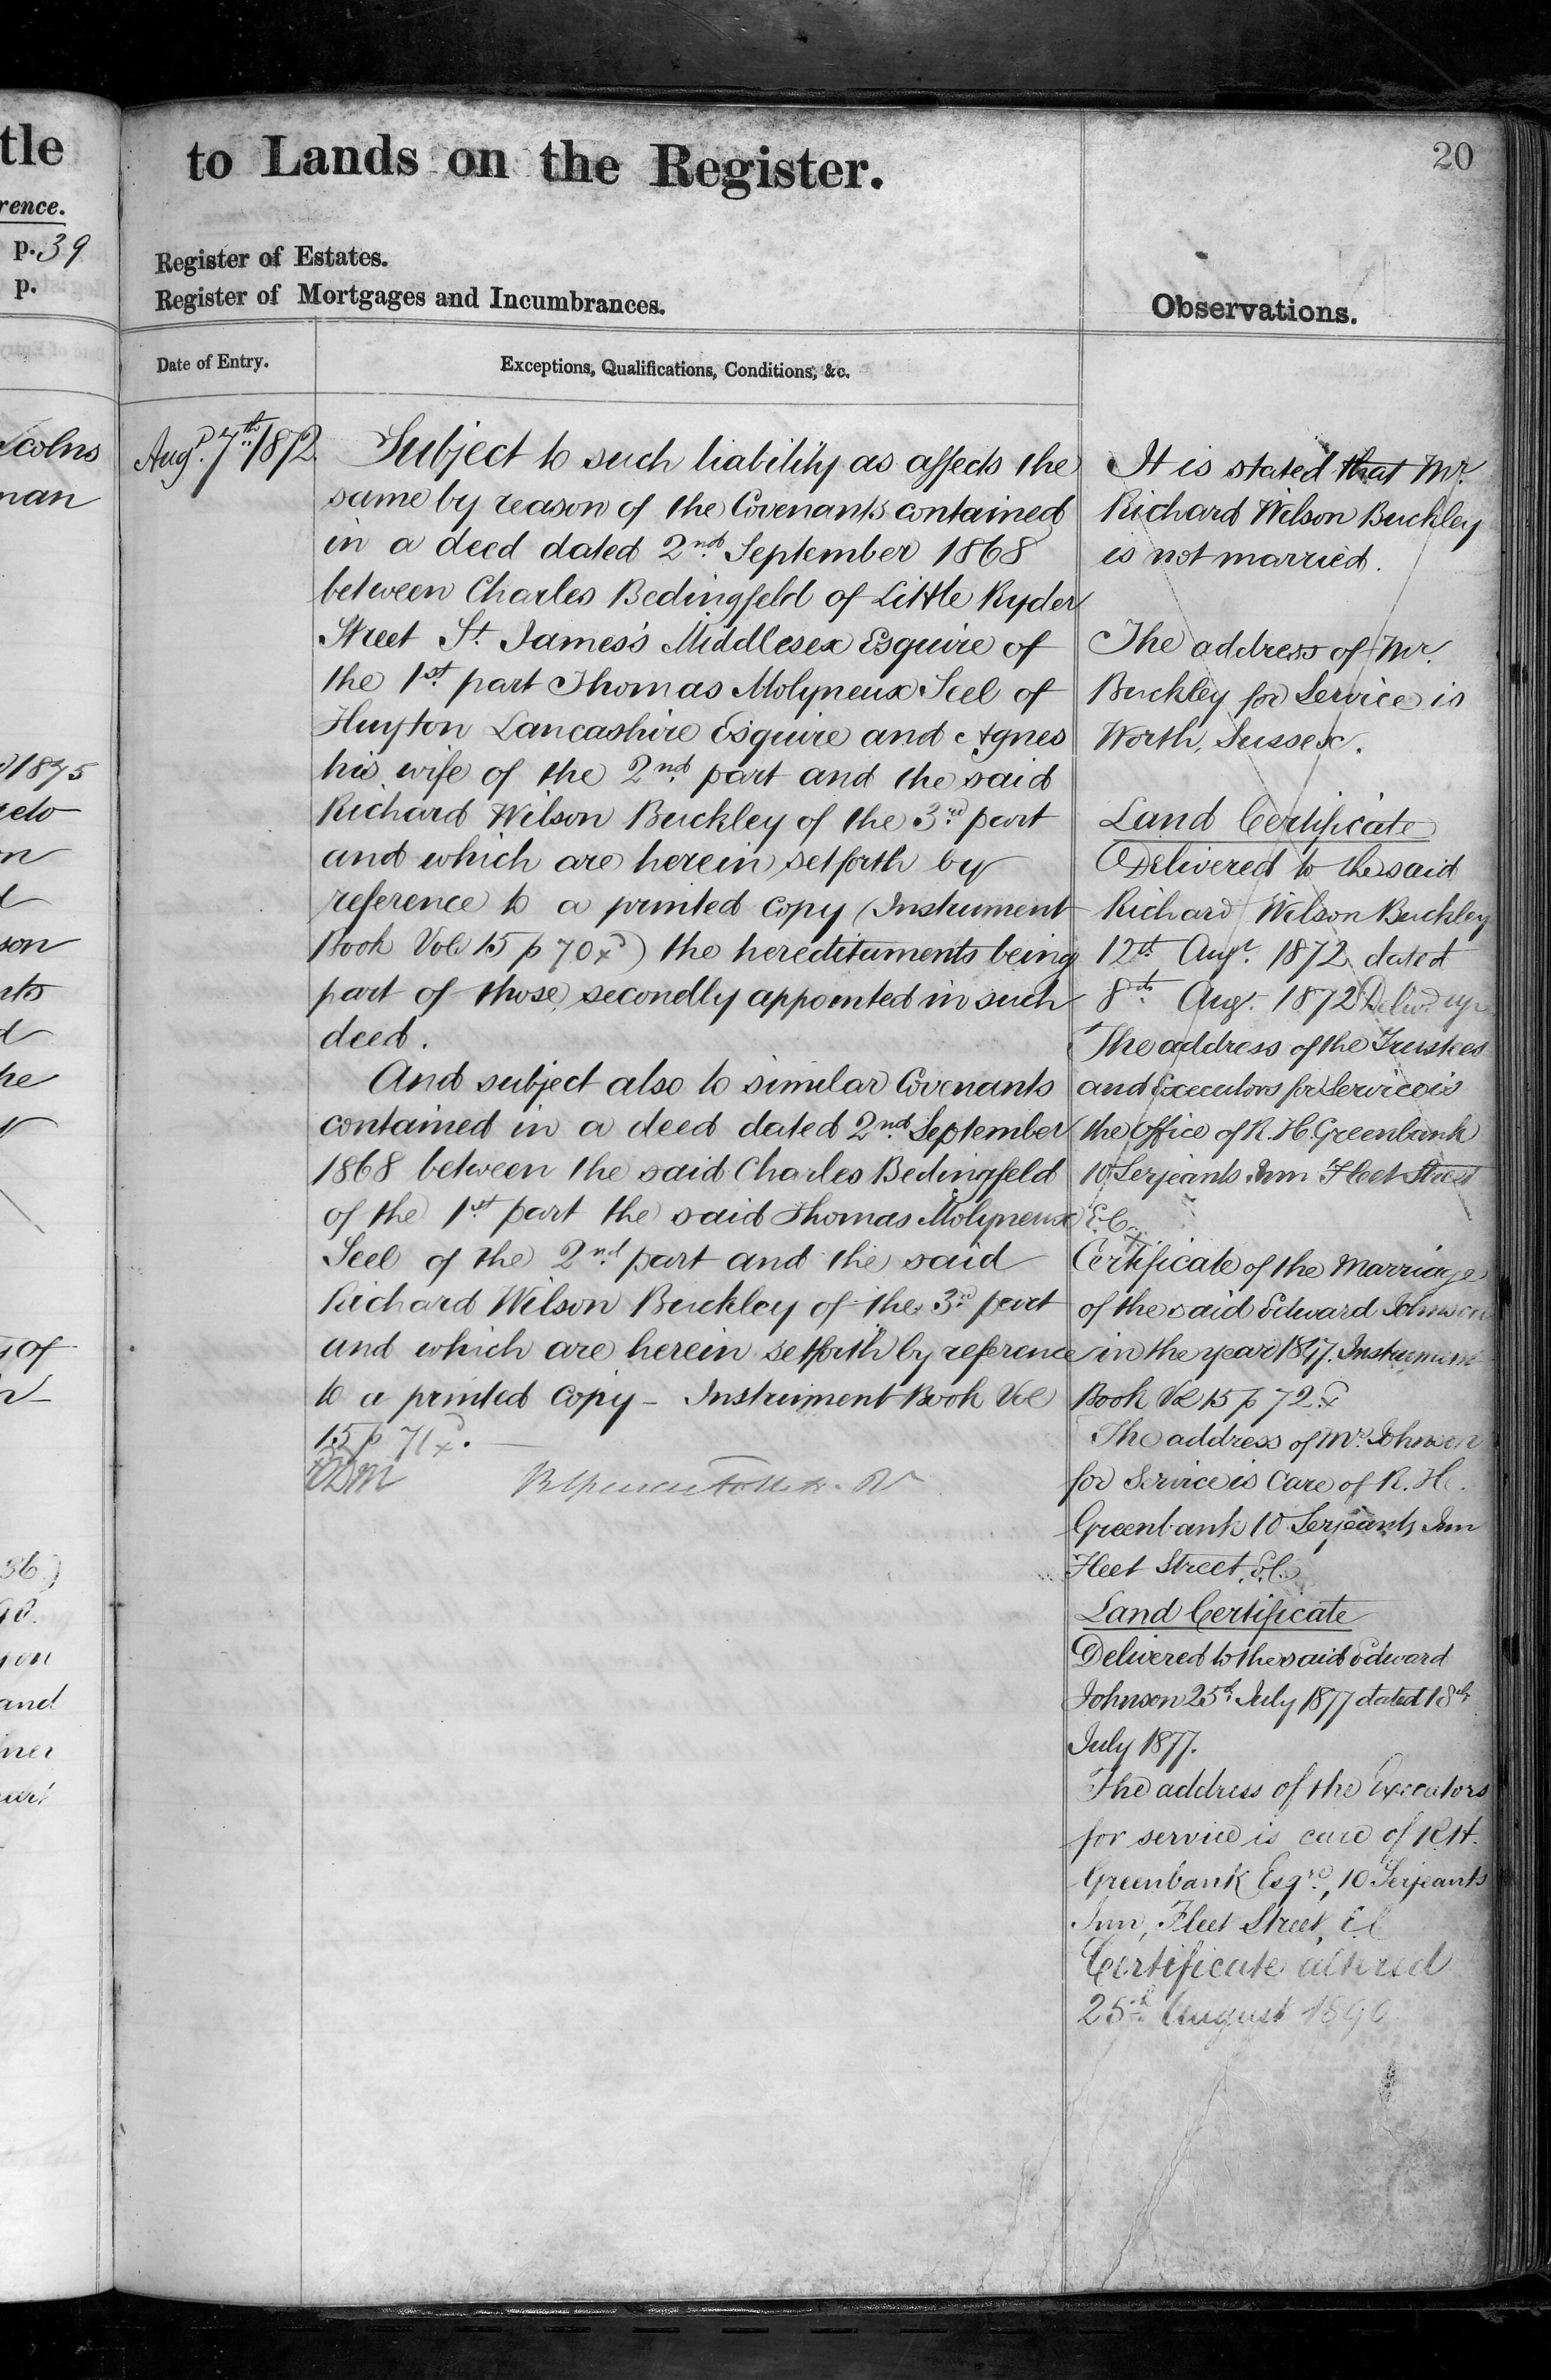 tle
rence.
p. 39
p.
colns
man
1875
son
of
and
to Lands on the Register.
20
Register of Estates.
Register of Mortgages and Incumbrances.
Observations.
Date of Entry.
Exceptions, Qualifications, Conditions, &c.
Augt. 7th 1872
Subject to such liability as affects the
same by reason of the Covenants contained
in a deed dated 2nd September 1868
between Charles Bedingfeld of Little Ryder
Street St. James's Middlesex Esquire of
the 1st part Thomas Molyneux Seel of
Huyton Lancashire Esquire and Agnes
his wife of the 2nd part and the said
Richard Wilson Buckley of the 3rd part
and which are herein setforth by
reference to a printed copy (Instrument
Book Vol 15 p 70x) the hereditaments being
part of those secondly appointed in such
deed.
And subject also to similar Covenants
contained in a deed dated 2nd September
1868 between the said Charles Bedingfeld
of the 1st part the said Thomas Molyneux
Seel of the 2nd part and the said
Richard Wilson Buckley of the 3rd part
and which are herein setforth by reference
to a printed copy - Instrument Book Vol
15 p 71x.
It is stated that Mr.
Richard Wilson Buckley
is not married.
The address of Mr.
Buckley for Service is
Worth, Sussex.
Land Certificate
Delivered to the said
Richard Wilson Buckley
12th Augt. 1872 dated
8th Aug. 1872 Delivd up
The address of the Trustees
and Executors for Service is
the office of R. H. Greenbank
10 Serjeants Inn Fleet Street
E.C.
Certificate of the Marriage
of the said Edward Johnson
in the year 1847. Instrument
Book Vol 15 p 72x
The address of Mr. Johnson
for Service is Care of R. H.
Greenbank 10 Serjeants Inn
Fleet Street, E.C.
Land Certificate
Delivered to the said Edward
Johnson 25th July 1877 dated 18th
July 1877.
The address of the Executors
for service is care of R.H.
Greenbank Esqre., 10 Serjeants
Inn, Fleet Street, E.C
Certificate altered
25th August 1890